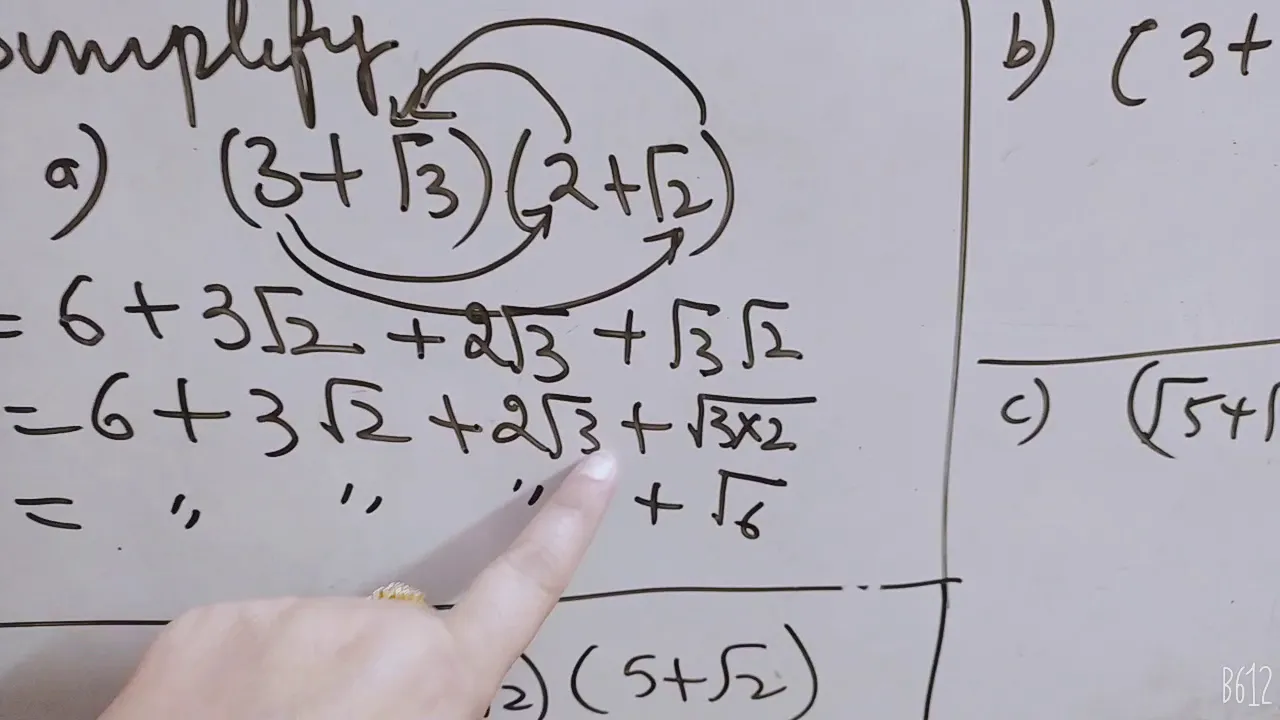 Simplify
a) (3+√3)(2+√2)
= 6 + 3√2 + 2√3 + √3 √2
= 6 + 3√2 + 2√3 + √3×2
= " " " + √6
2) (5+√2)
b) (3+
c) (√5+√
B612